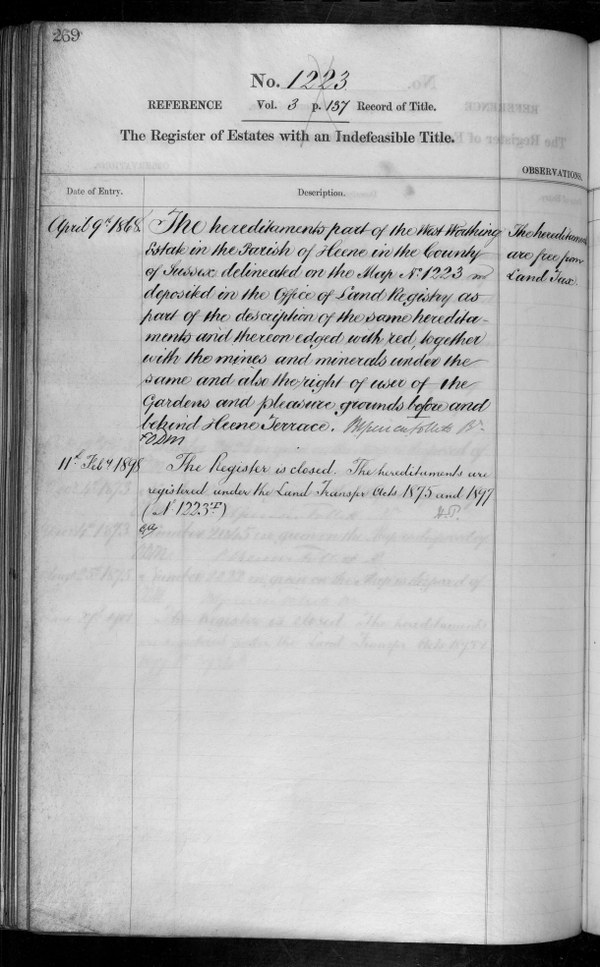 269
No. 1223
REFERENCE Vol. 3 p. 137 Record of Title.
The Register of Estates with an Indefeasible Title.
OBSERVATIONS.
Date of Entry. Description.
April 9th 1868. The hereditaments part of the West Worthing
Estate in the Parish of Heene in the County
of Sussex delineated on the Map No. 1223
deposited in the Office of Land Registry as
part of the description of the same heredita-
ments and thereon edged with red together
with the mines and minerals under the
same and also the right of user of the
Gardens and pleasure grounds before and
behind Heene Terrace.
The hereditaments
are free from
Land Tax.
11th Feby 1898 The Register is closed. The hereditaments are
registered under the Land Transfer Acts 1875 and 1897
(No 1223F)